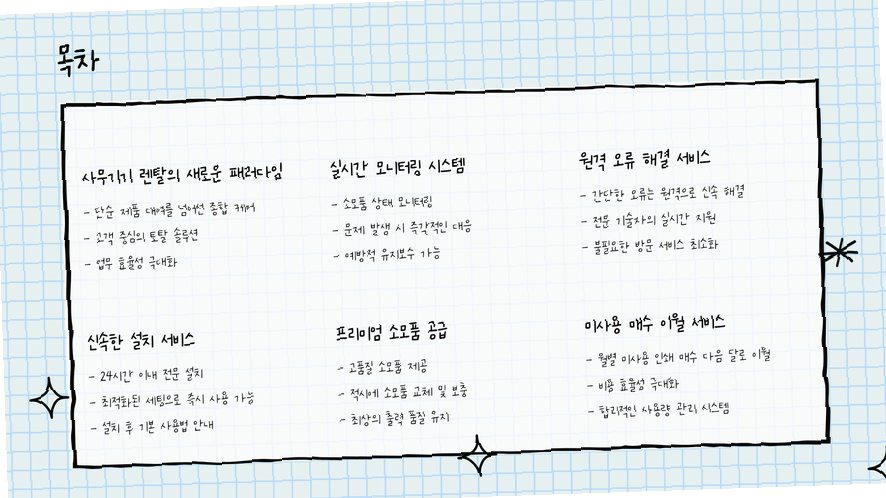 목차
사무기기 렌탈의 새로운 패러다임
- 단순 제품 대여를 넘어선 종합 케어
- 고객 중심의 토탈 솔루션
- 업무 효율성 극대화
실시간 모니터링 시스템
- 소모품 상태 모니터링
- 문제 발생 시 즉각적인 대응
- 예방적 유지보수 가능
원격 오류 해결 서비스
- 간단한 오류는 원격으로 신속 해결
- 전문 기술자의 실시간 지원
- 불필요한 방문 서비스 최소화
신속한 설치 서비스
- 24시간 이내 전문 설치
- 최적화된 세팅으로 즉시 사용 가능
- 설치 후 기본 사용법 안내
프리미엄 소모품 공급
- 고품질 소모품 제공
- 적시에 소모품 교체 및 보충
- 최상의 출력 품질 유지
미사용 매수 이월 서비스
- 월별 미사용 인쇄 매수 다음 달로 이월
- 비용 효율성 극대화
- 합리적인 사용량 관리 시스템